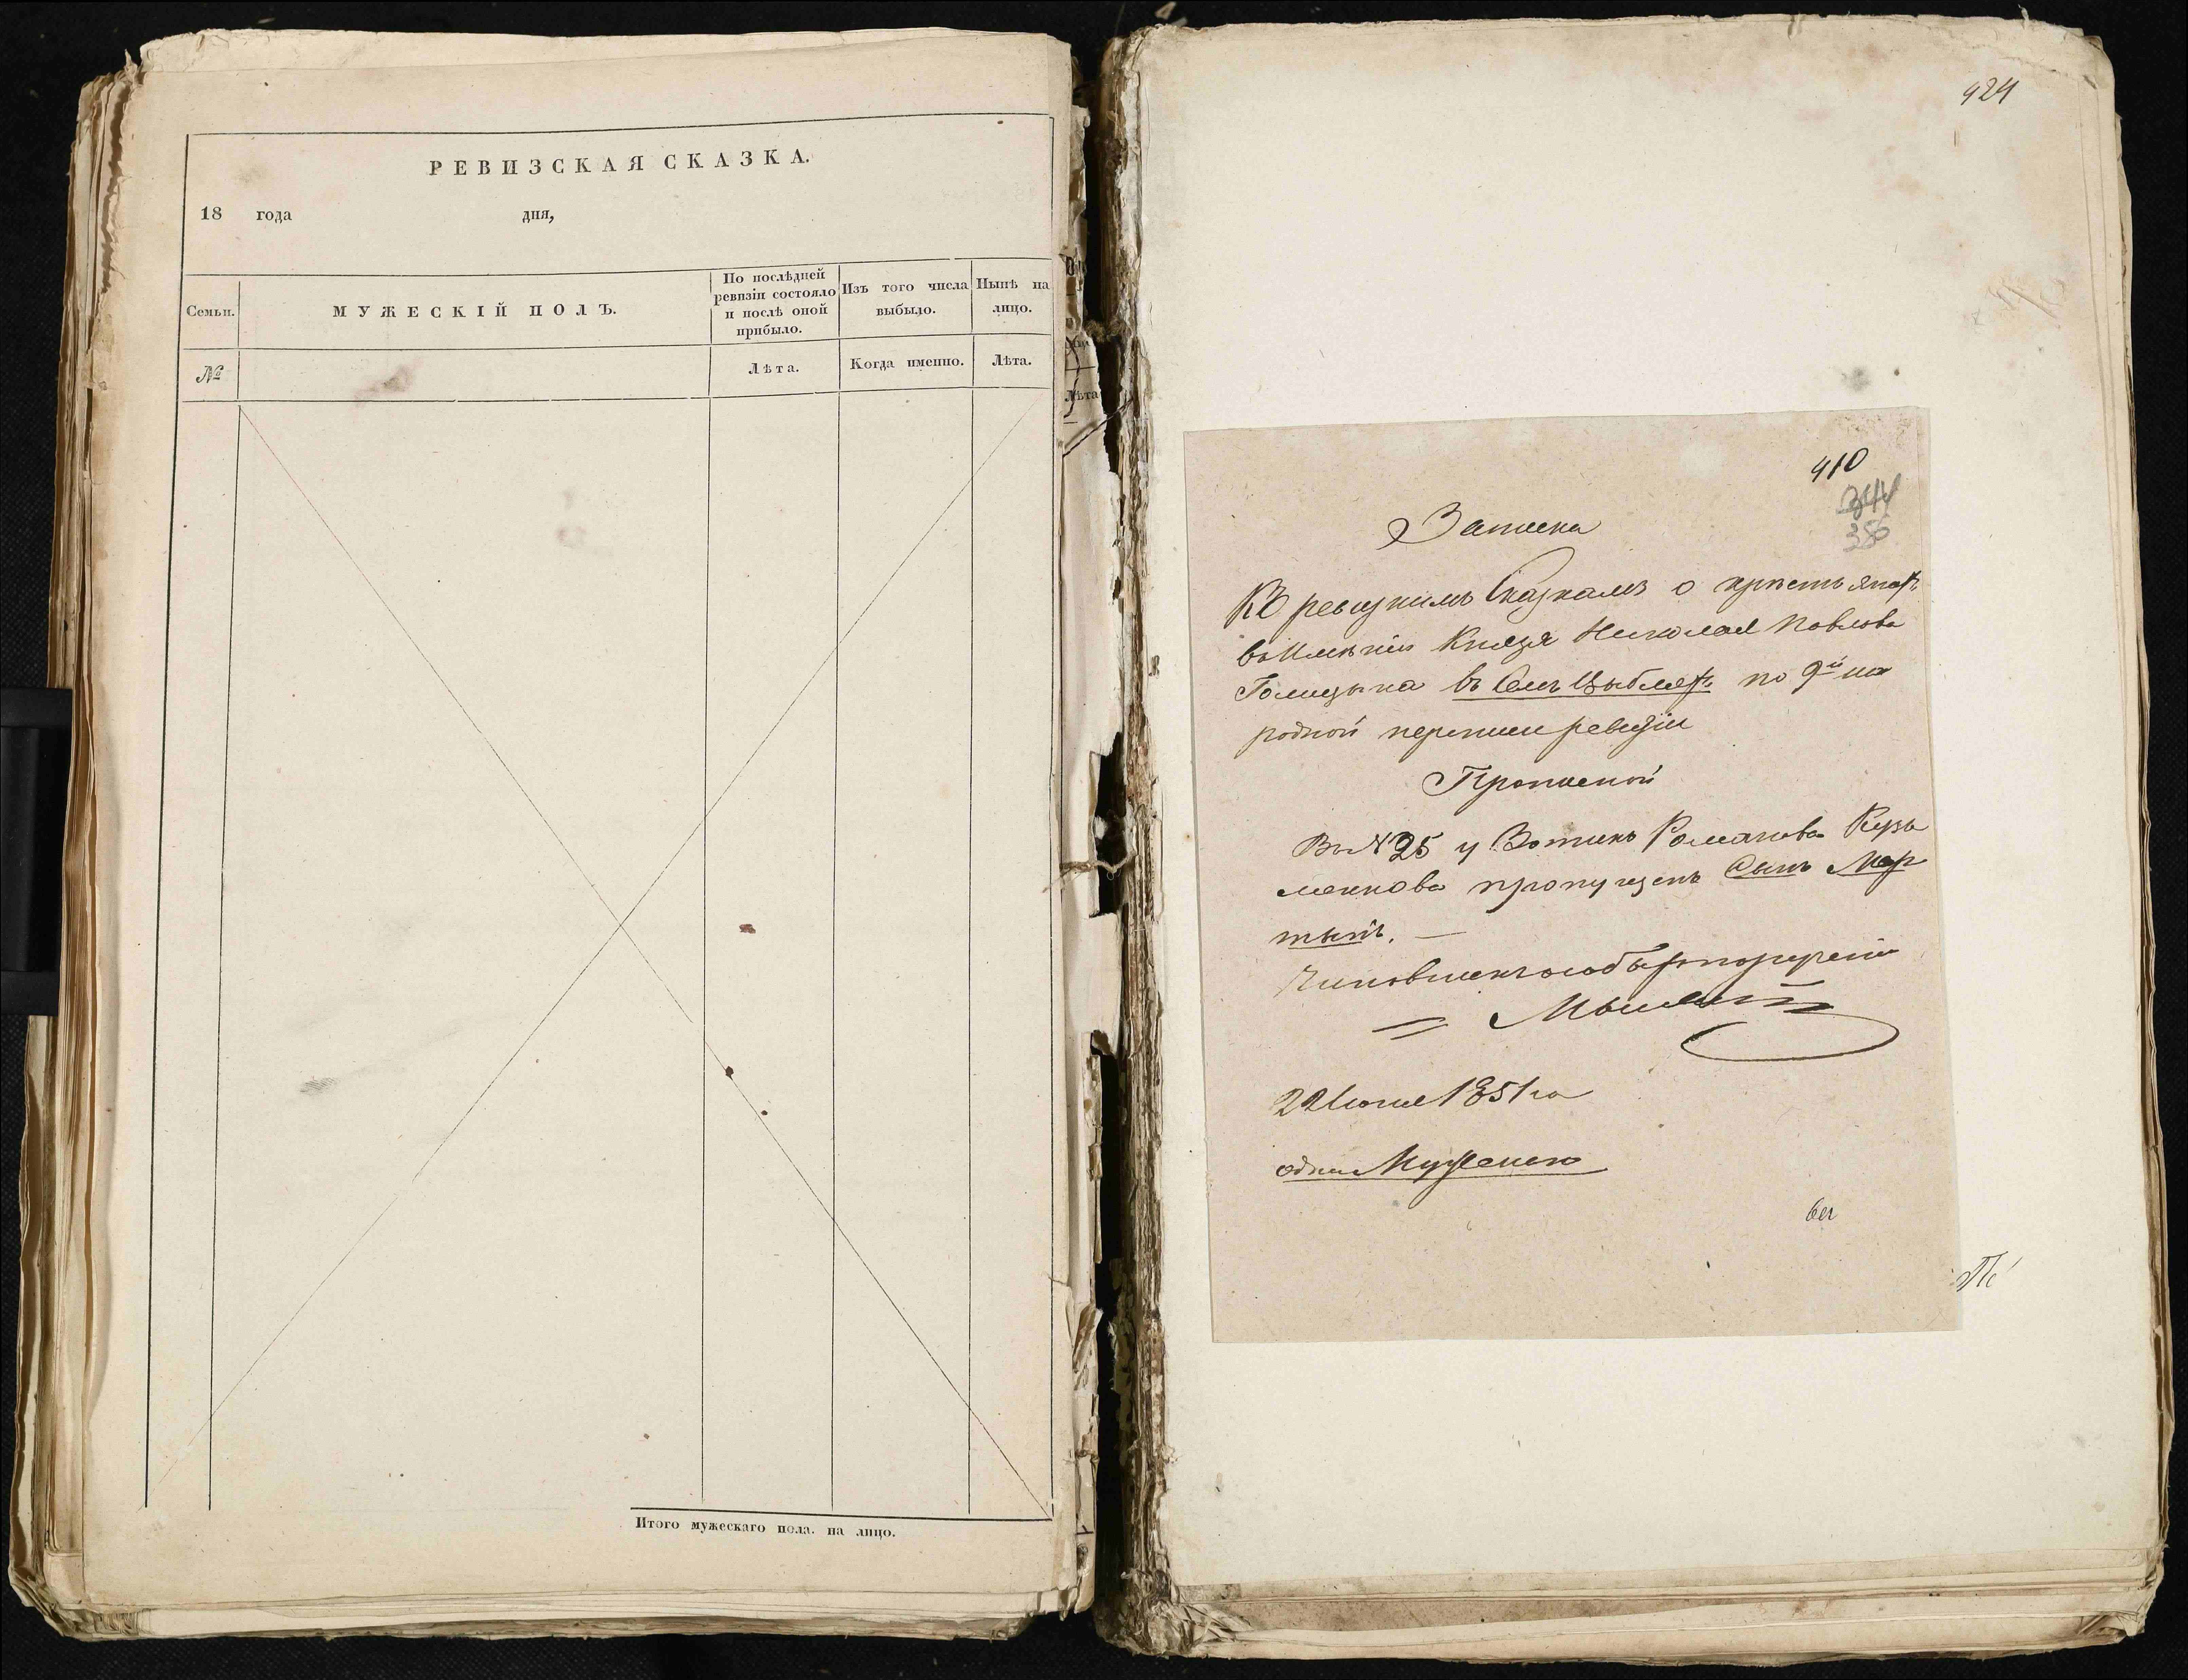 РЕВИЗСКАЯ СКАЗКА.
18 года дня,
Семьи.
МУЖЕСКІЙ ПОЛЪ.
По послѣдней
ревизіи состояло
и послѣ оной
прибыло.
Изъ того числа
выбыло.
Нынѣ на
лицо.
№
Лѣта.
Когда именно.
Лѣта.
Итого мужескаго пола. на лицо.
Лѣта
424
410
344
356
Записка
Къ ревизкимъ Сказкамъ о крестьянахъ
въ Имѣніи Князя Николая Павлова
Голицына въ Селѣ Цыбляхъ по 9й на
родной переписи ревизіи
Прописной
Въ № 25 у Вотикъ Романова Кузь
менкова пропущенъ Сынъ Мар
тынъ. —
Чиновникъ особыхъ порученій
22 Июня 1851 го
одна Мужеска